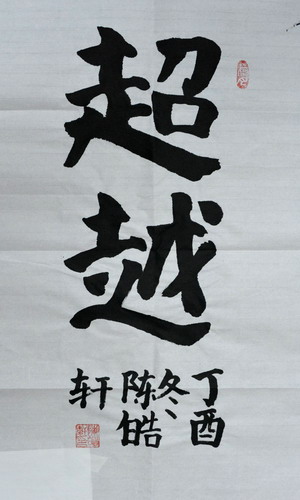 超越
丁酉
冬、
陈皓
轩